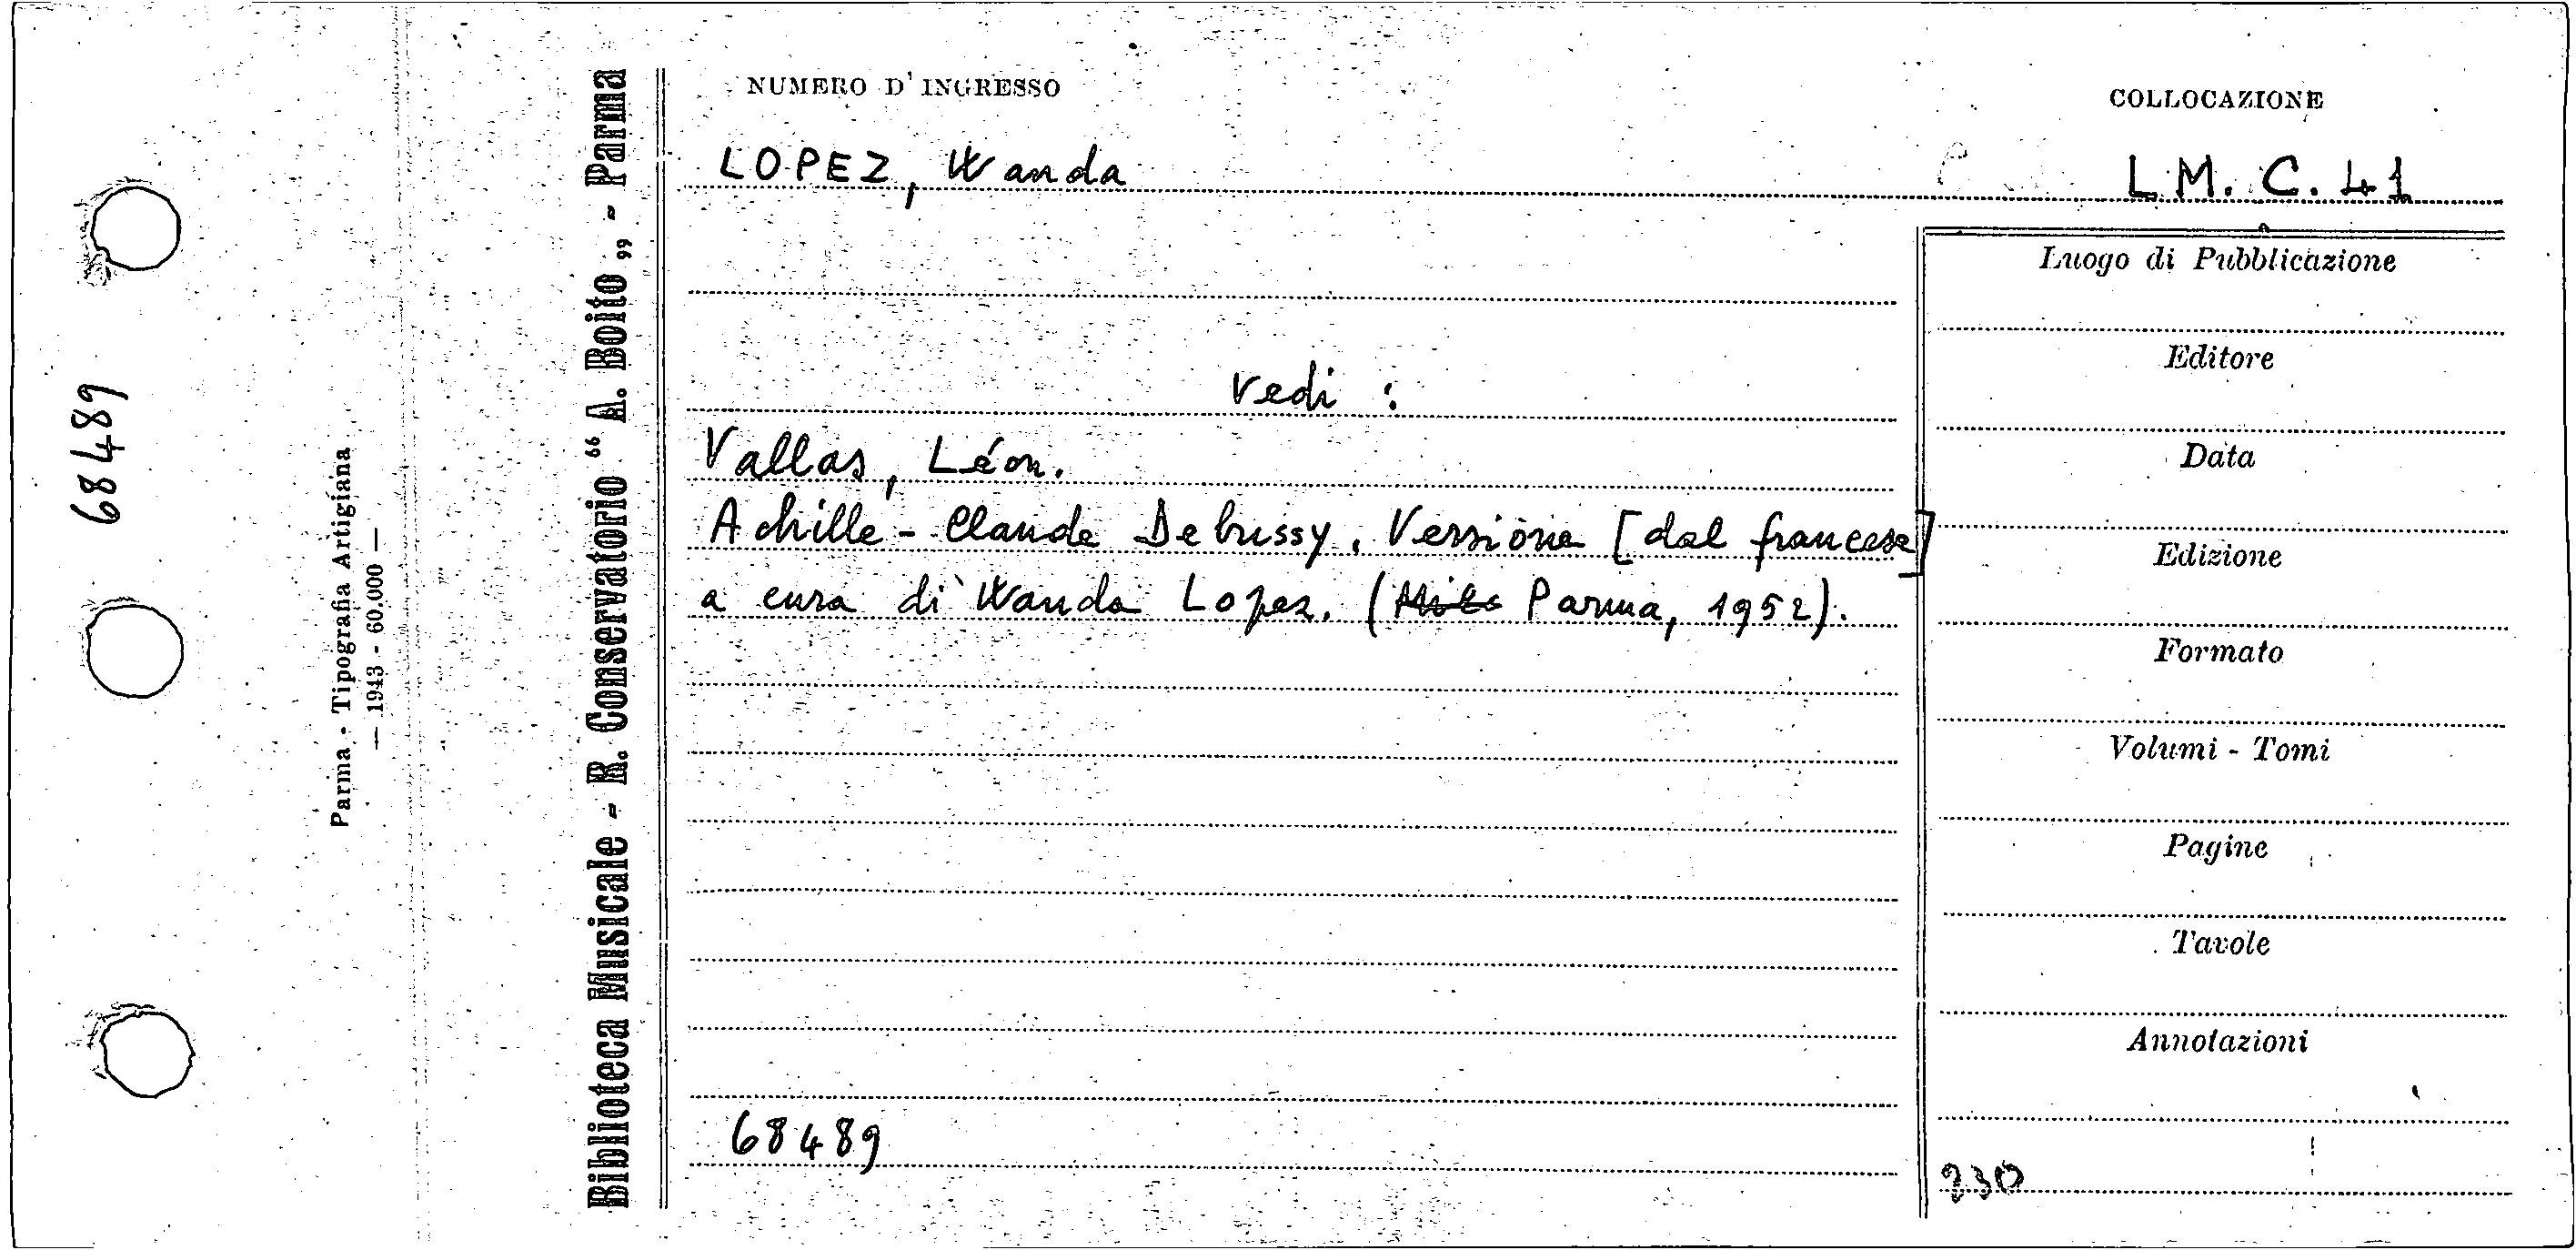 68489
Parma - Tipografia Artigiana
— 1943 - 60.000 —
Biblioteca Musicale - R. Conservatorio “ A. Boito „ - Parma
NUMERO D' INGRESSO
COLLOCAZIONE
LOPEZ, Wanda
L.M. C. 41
vedi :
Vallas, Léon.
Achille - Claude Debussy. Versione [dal francese]
a cura di Wanda Lopez. (Mila Parma, 1952).
68489
Luogo di Pubblicazione
Editore
Data
Edizione
Formato
Volumi - Tomi
Pagine
Tavole
Annotazioni
230